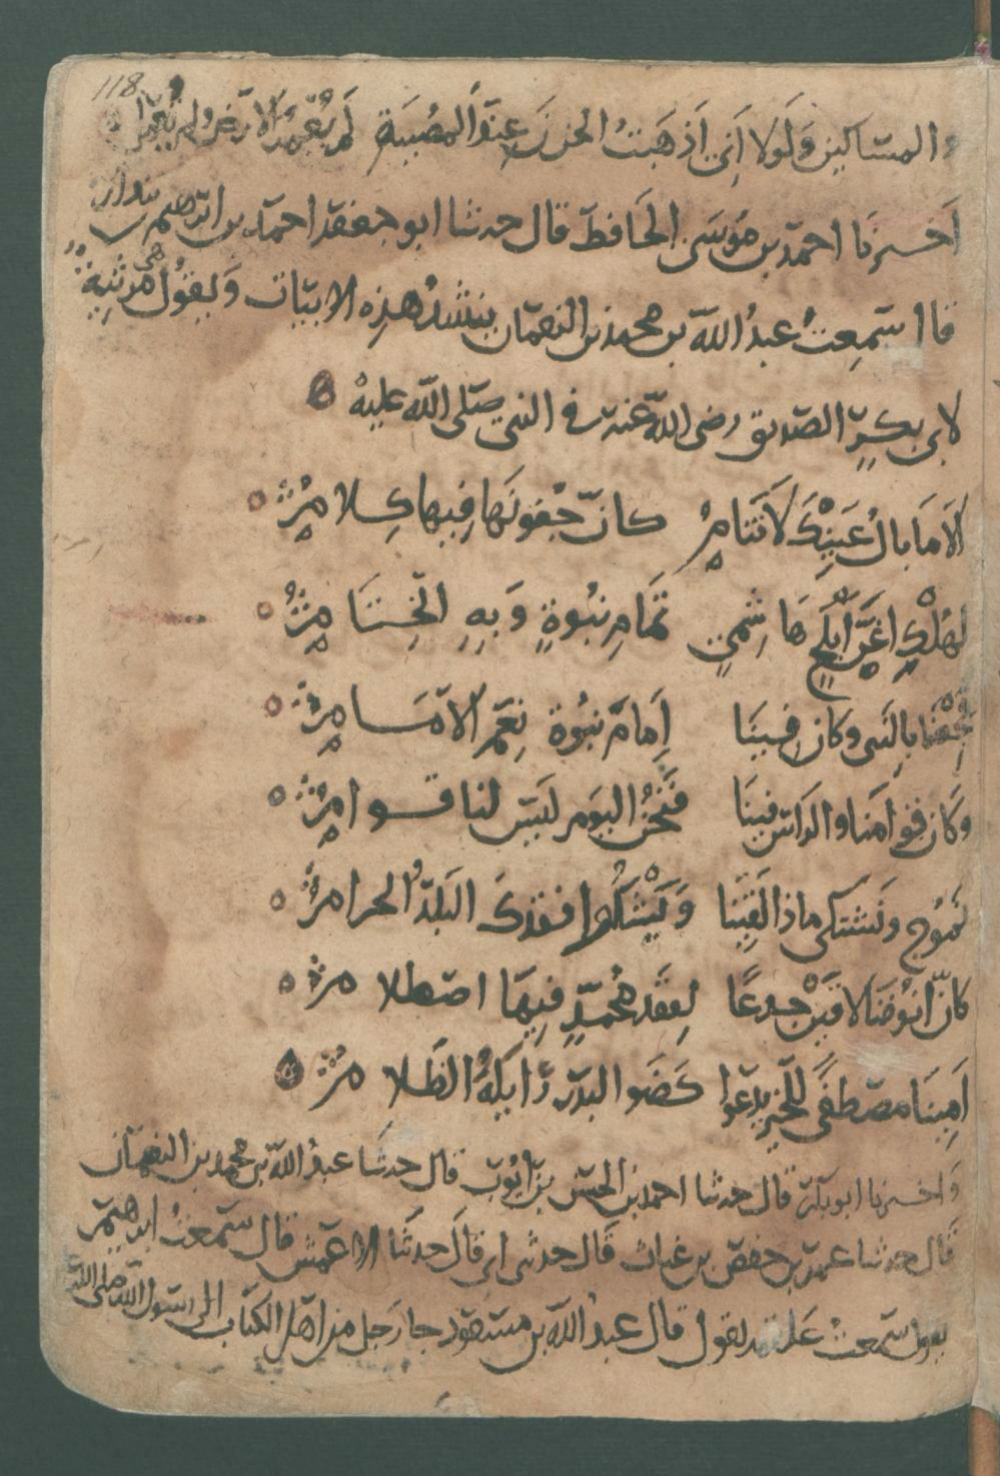 118
والمساكين وَلَولا اَنِّي اَذهَبتُ الحزنَ عِندَ المصُيبَةِ لَم تُعْمَر الارض ولم
اَخبرنا احمد بن مُوسَى الحَافظ قال حدثنا ابو جعفر احمد بن ابراهيم بندار
قال سَمِعتُ عبدُ الله بن محمد بن النعمان ينشد هذه الابيات وَيقول هى مرثية
لابى بكرٍ الصديق رضى الله عنه فى النبى صلى الله عليه
اَلاَ مَا بالُ عَينِكَ لاَ تَنامُ كانّ جفونَها فِيها كِلامُ
لهُلْكِ اغَرَّ اَبلَج هَا شِمىٍ تمامِ نبُوةٍ وَبهِ الخِتَامُ
فُجِعْنَا بالنَبى وكان فِينَا اِمامَ نبُوة نِعْمَ الاِمَامُ
وَكان قوامَنا والراس فينَا فَنحْنُ اليَوم ليس لنا قوامُ
نَمُوج ونَشتكى ماذا لَقِينا وَيَشْكُوا فقدَكَ البَلدُ الحرامُ
كانّ انوُفنَا لاقَينَ جدعًا لِفَقد محُمدٍ فِيهَا اصطلامُ
اَمِينَا مصطفًى للخيرِ يدعُوا كضَو البدر زَايَلَهُ الظلامُ
وَاخبرنا ابو بكر قال حدثنا احمد بن الحسن بن أيوب قال حدثنا عبدُ الله بن محمد بن النعمان
قال حدثنا عمر بن حفص بن غياث قَال حدثنى ابى قَال حدثنَا الاعمش قال سَمعتُ ابرهيم
يقول سَمعت علقمه يقول قال عبدُ الله بن مسعود جا رَجل من اهل الكتاب الى رسول الله صلى الله